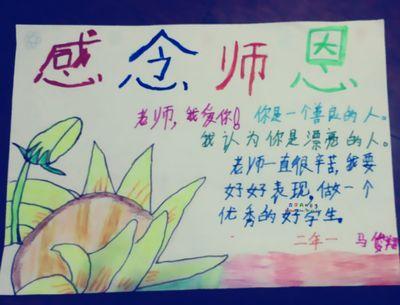 感念师恩
老师,我爱你!你是一个善良的人。
我认为你是漂亮的人。
老师一直很辛苦,我要
好好表现,做一个
优秀的好学生。
二年一 马俊